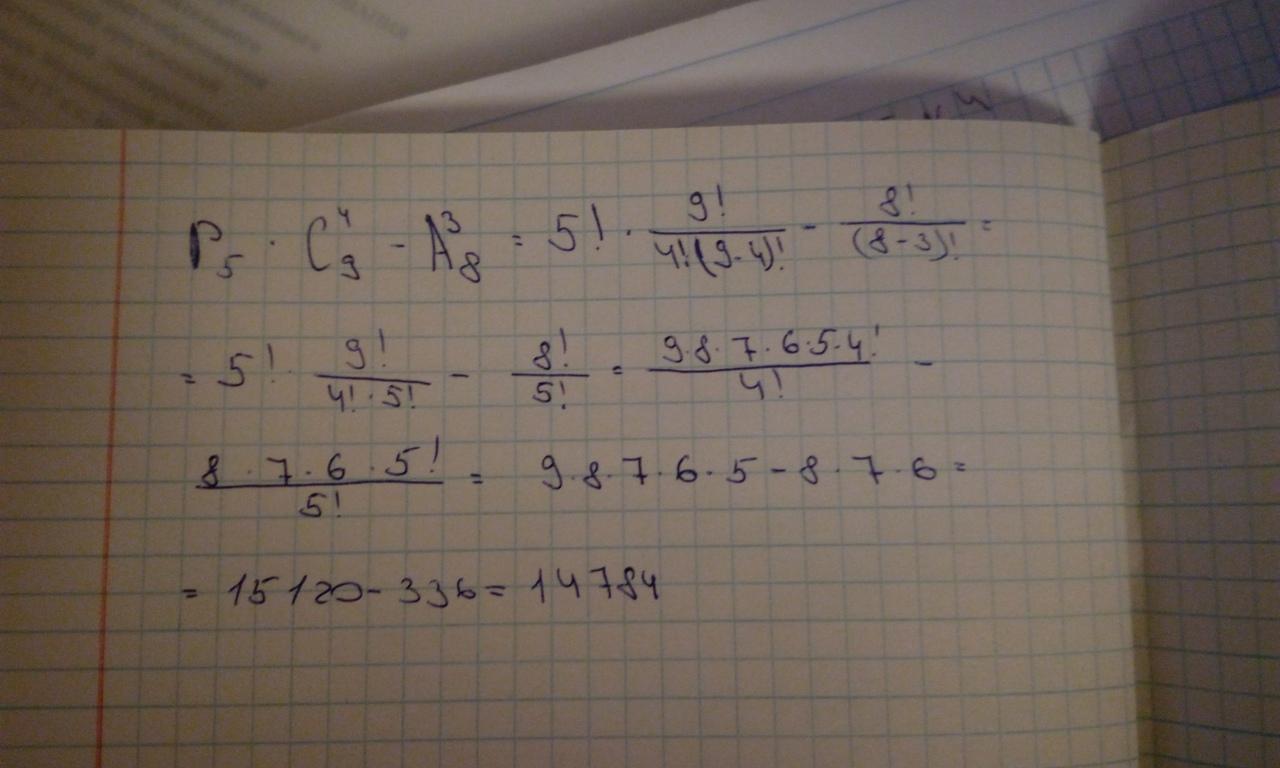 P₅ · C₉⁴ - A₈³ = 5! · 9!/(4!(9-4)!) - 8!/((8-3)!) =
= 5! · 9!/(4!·5!) - 8!/5! = (9·8·7·6·5·4!)/4! -
(8·7·6·5!)/5! = 9·8·7·6·5-8·7·6=
= 15120-336=14784